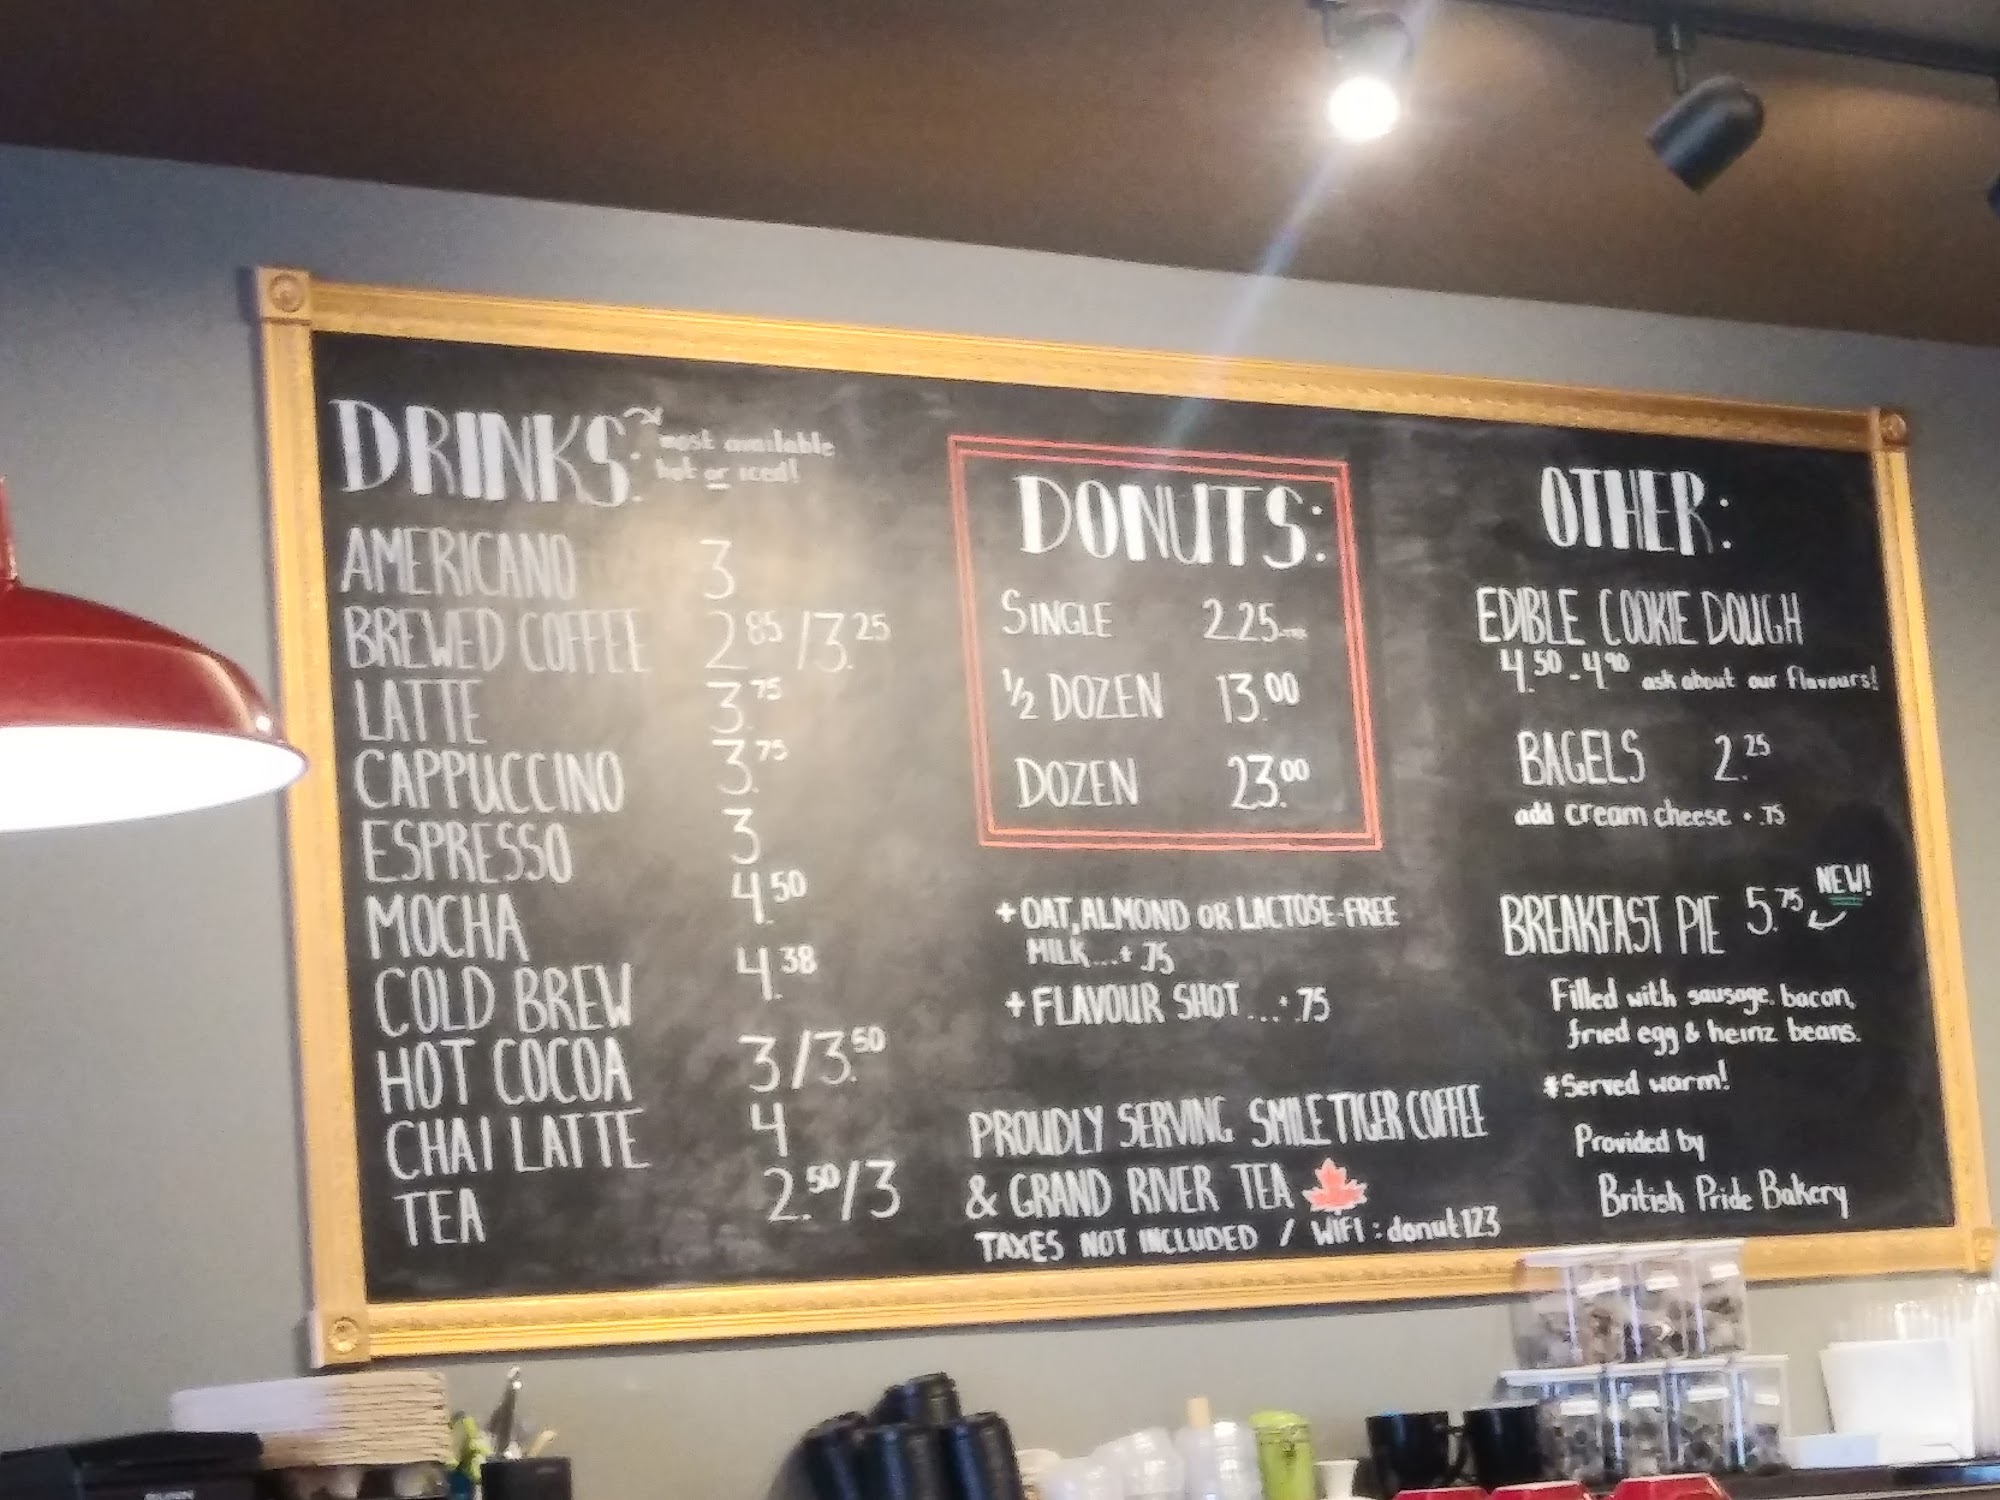 DRINKS:
most available
hot or iced!
AMERICANO 3
BREWED COFFEE 2.85 / 3.25
LATTE 3.75
CAPPUCCINO 3.75
ESPRESSO 3
MOCHA 4.50
COLD BREW 4.38
HOT COCOA 3 / 3.50
CHAI LATTE 4
TEA 2.50 / 3
DONUTS:
SINGLE 2.25
1/2 DOZEN 13.00
DOZEN 23.00
+ OAT, ALMOND OR LACTOSE-FREE
MILK...+ .75
+ FLAVOUR SHOT...+ .75
PROUDLY SERVING SMILE TIGER COFFEE
& GRAND RIVER TEA
TAXES NOT INCLUDED / WIFI: donut123
OTHER:
EDIBLE COOKIE DOUGH
4.50 - 4.90 ask about our flavours!
BAGELS 2.25
add cream cheese + .75
NEW!
BREAKFAST PIE 5.75
Filled with sausage, bacon,
fried egg & heinz beans.
*Served warm!
Provided by
British Pride Bakery